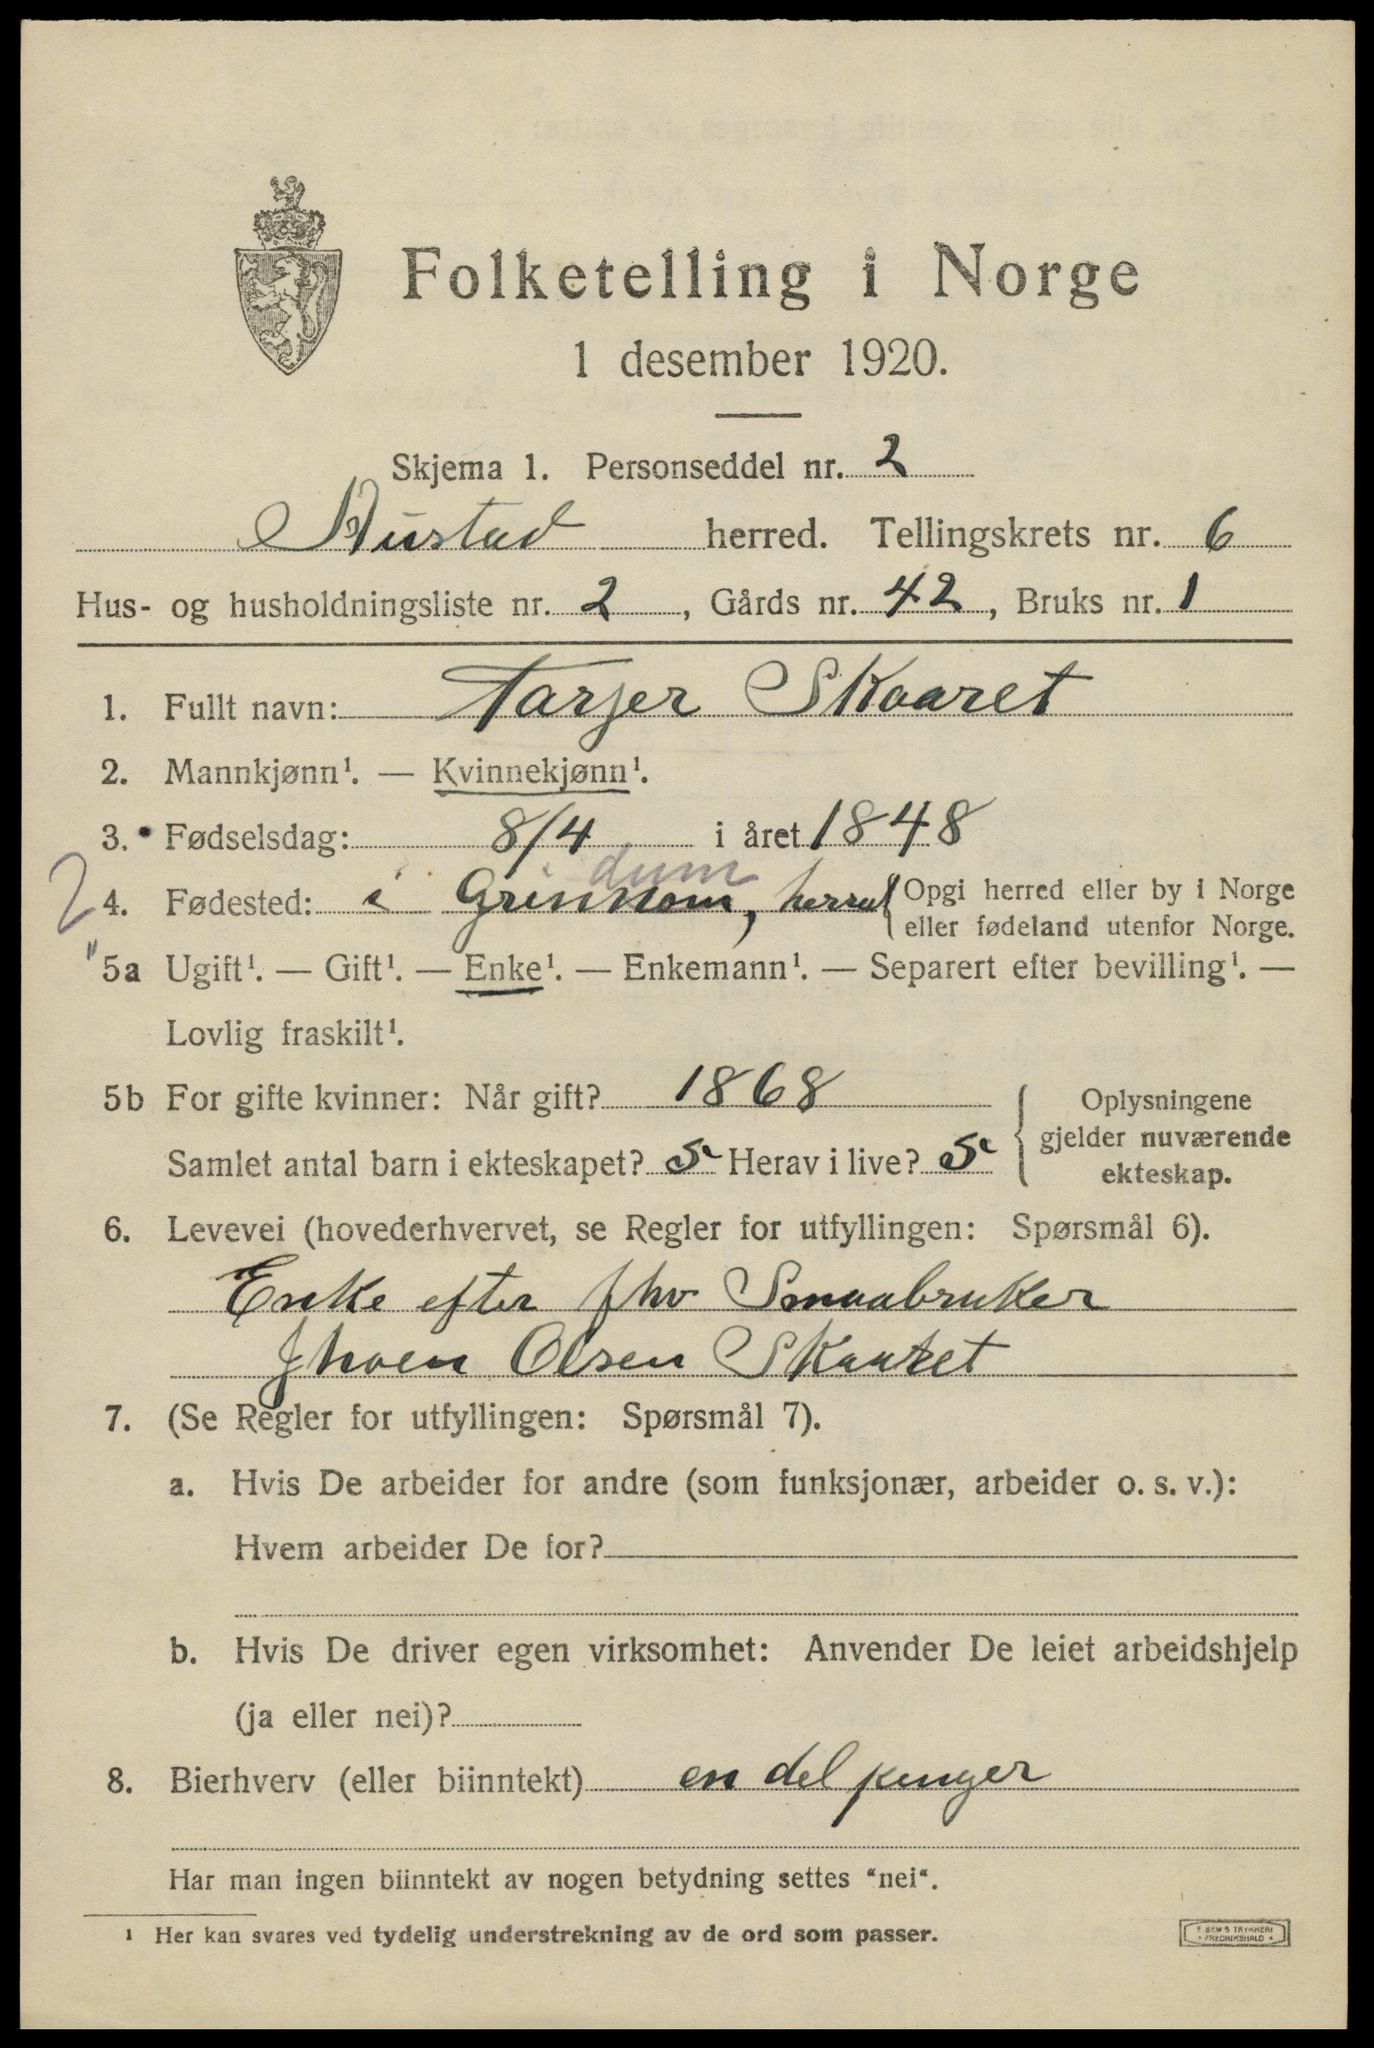 Folketelling i Norge
1 desember 1920.
Skjema 1. Personseddel nr. 2
Hustad herred. Tellingskrets nr. 6
Hus- og husholdningsliste nr. 2, Gårds nr. 42, Bruks nr. 1
1. Fullt navn: Tarjer Skaaret
2. Mannkjønn¹. — Kvinnekjønn¹.
3. Fødselsdag: 8/4 i året 1848
dum
2
4. Fødested: i Grinnom, herred { Opgi herred eller by i Norge
eller fødeland utenfor Norge.
" 5a Ugift¹. — Gift¹. — Enke¹. — Enkemann¹. — Separert efter bevilling¹. —
Lovlig fraskilt¹.
5b For gifte kvinner: Når gift? 1868
Samlet antal barn i ekteskapet? 5 Herav i live? 5
{ Oplysningene
gjelder nuværende
ekteskap.
6. Levevei (hovederhvervet, se Regler for utfyllingen: Spørsmål 6).
Enke efter fhv Smaabruker
Olsen Skaaret
7. (Se Regler for utfyllingen: Spørsmål 7).
a. Hvis De arbeider for andre (som funksjonær, arbeider o. s. v.):
Hvem arbeider De for?
b. Hvis De driver egen virksomhet: Anvender De leiet arbeidshjelp
(ja eller nei)?
8. Bierhverv (eller biinntekt) en del penger
Har man ingen biinntekt av nogen betydning settes "nei".
¹ Her kan svares ved tydelig understrekning av de ord som passer.
SEM'S TRYKKERI
FREDRIKSHALD